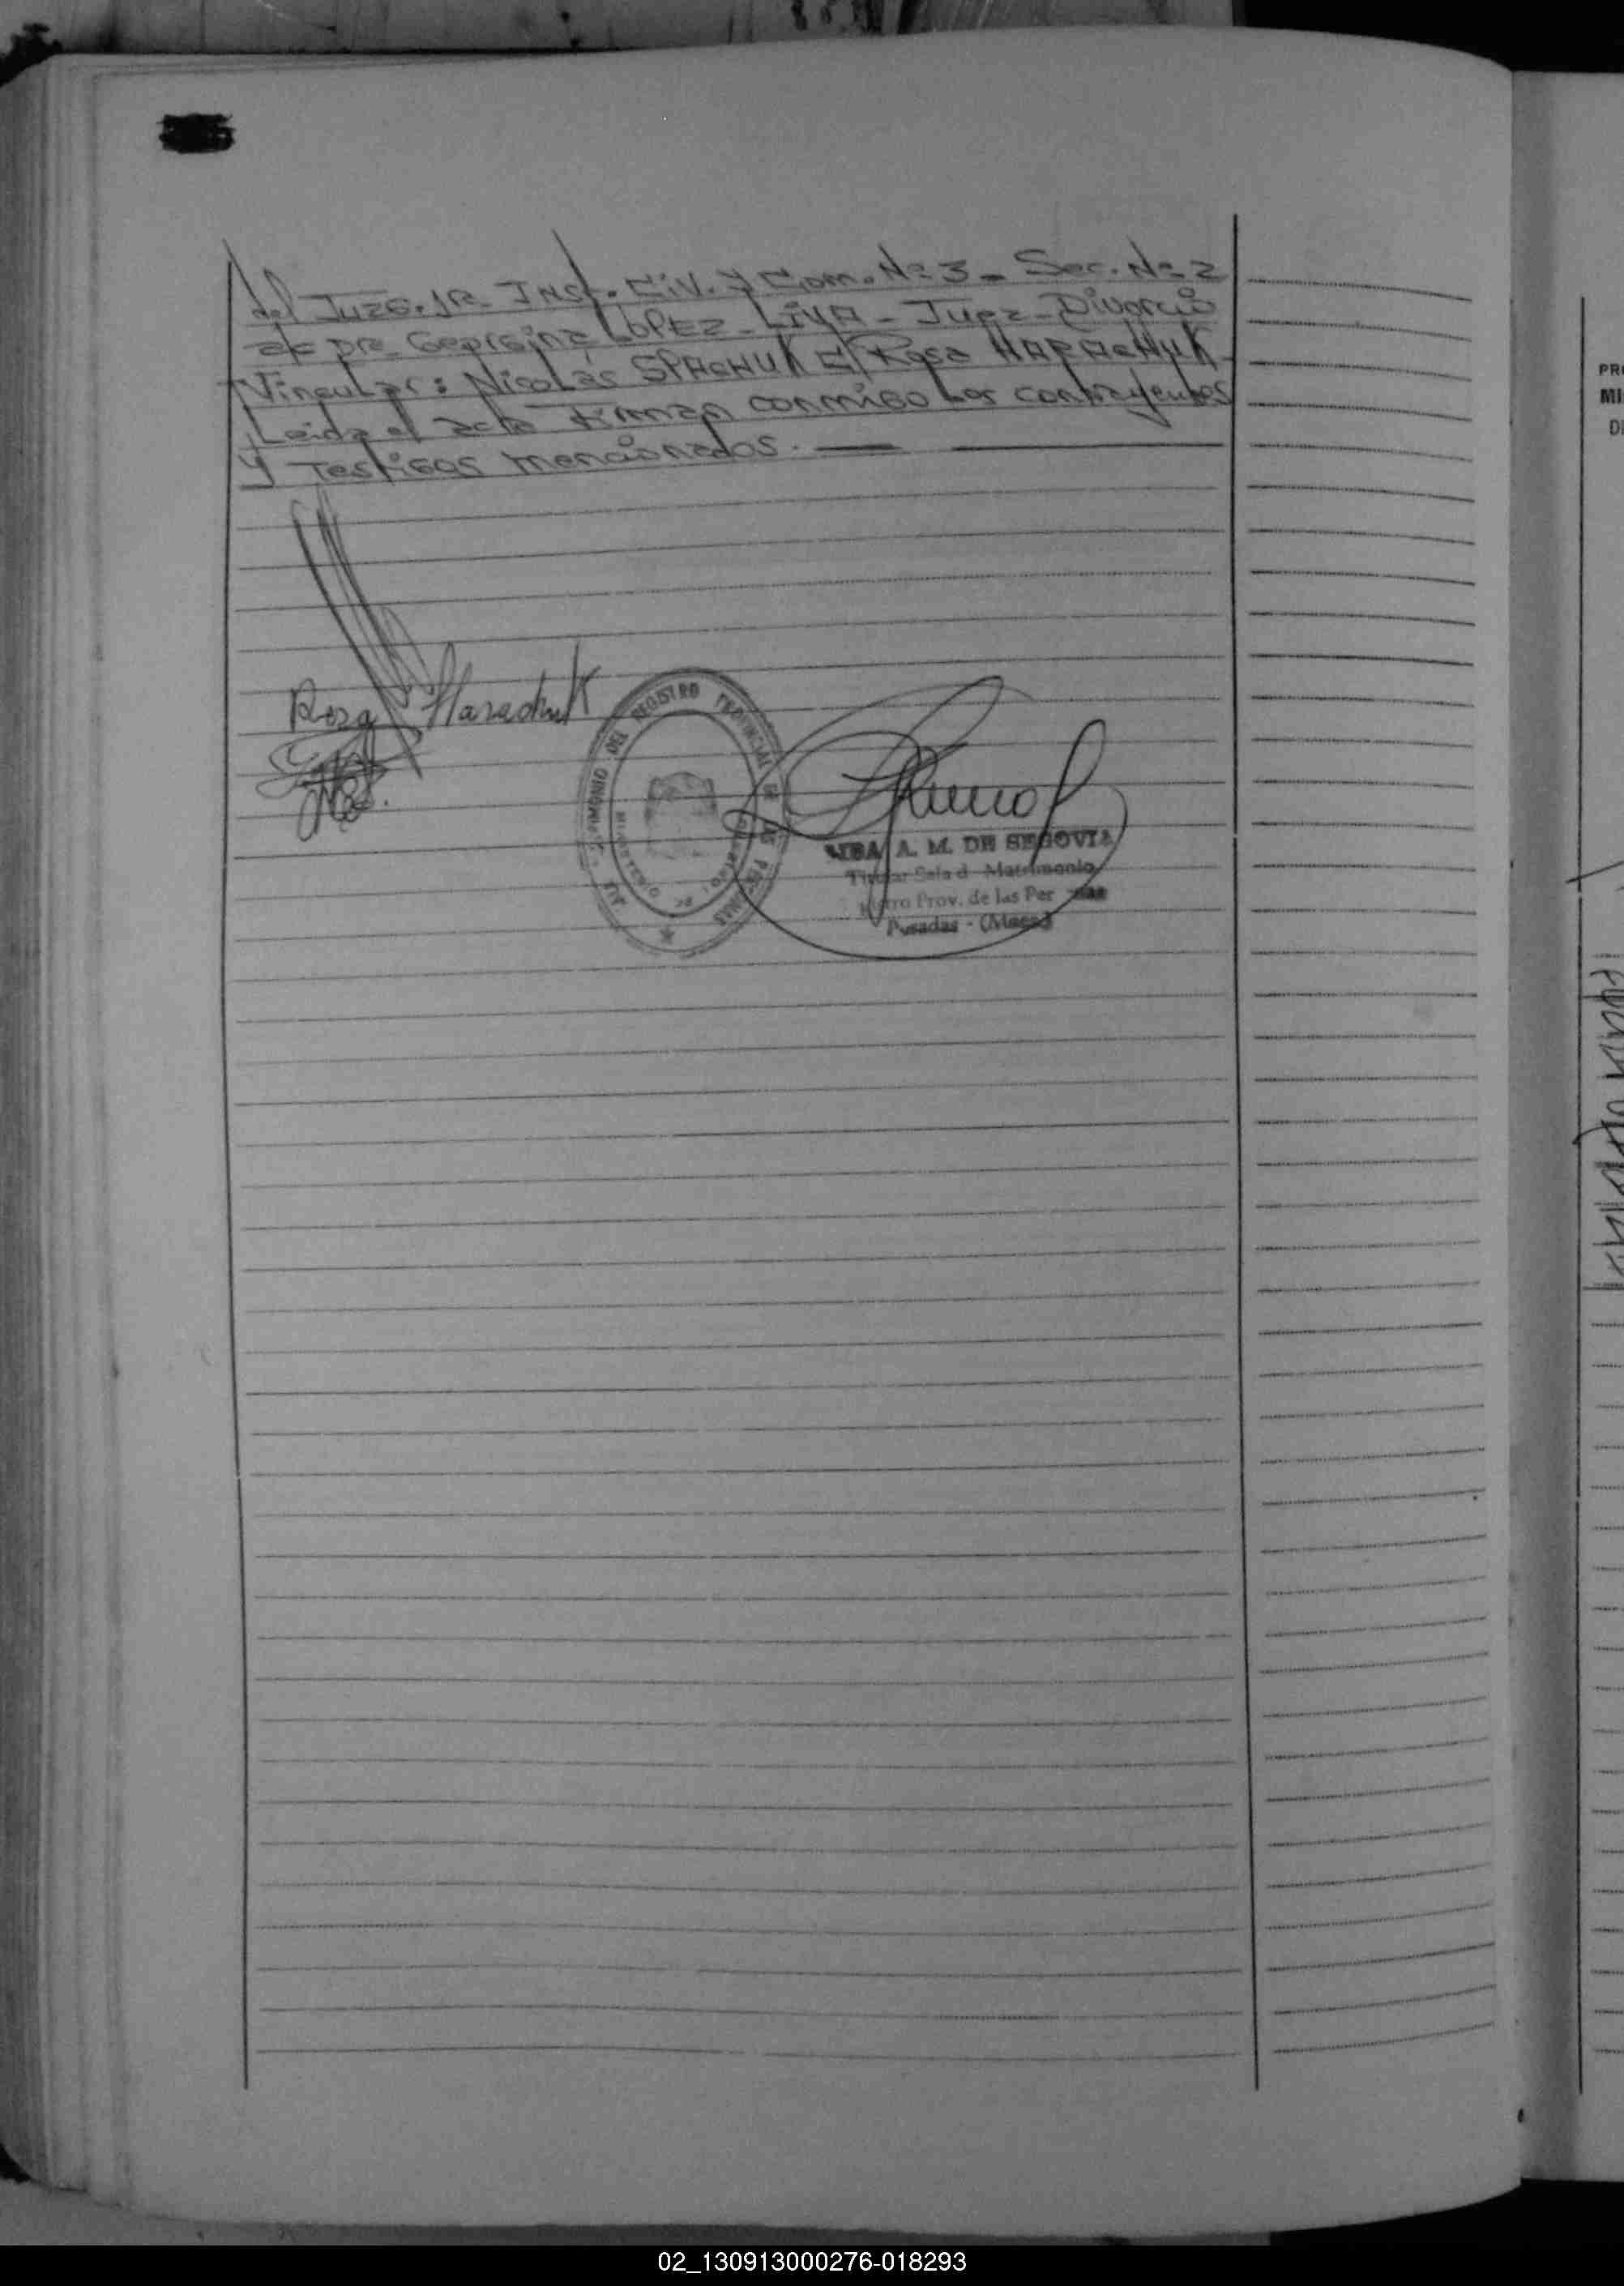 del Juzg. 1ª Inst. Civ. y Com. Nº 3 - Sec. Nº 2
Dra. Georgina López Liva - Juez - Divorcio
Vincular: Nicolás SPACHUK C/ Rosa HARACHUK -
Leida el acta firman conmigo los contrayentes
y Testigos mencionados. —
Rosa Harachuk
DEL REGISTRO PROVINCIAL DE LAS PERSONAS
MINISTERIO DE GOBIERNO
A. M. DE SEGOVIA
Titular Sala de Matrimonio
Prov. de las Per
Posadas - (Mnes)
PR
MI
D
02_130913000276-018293